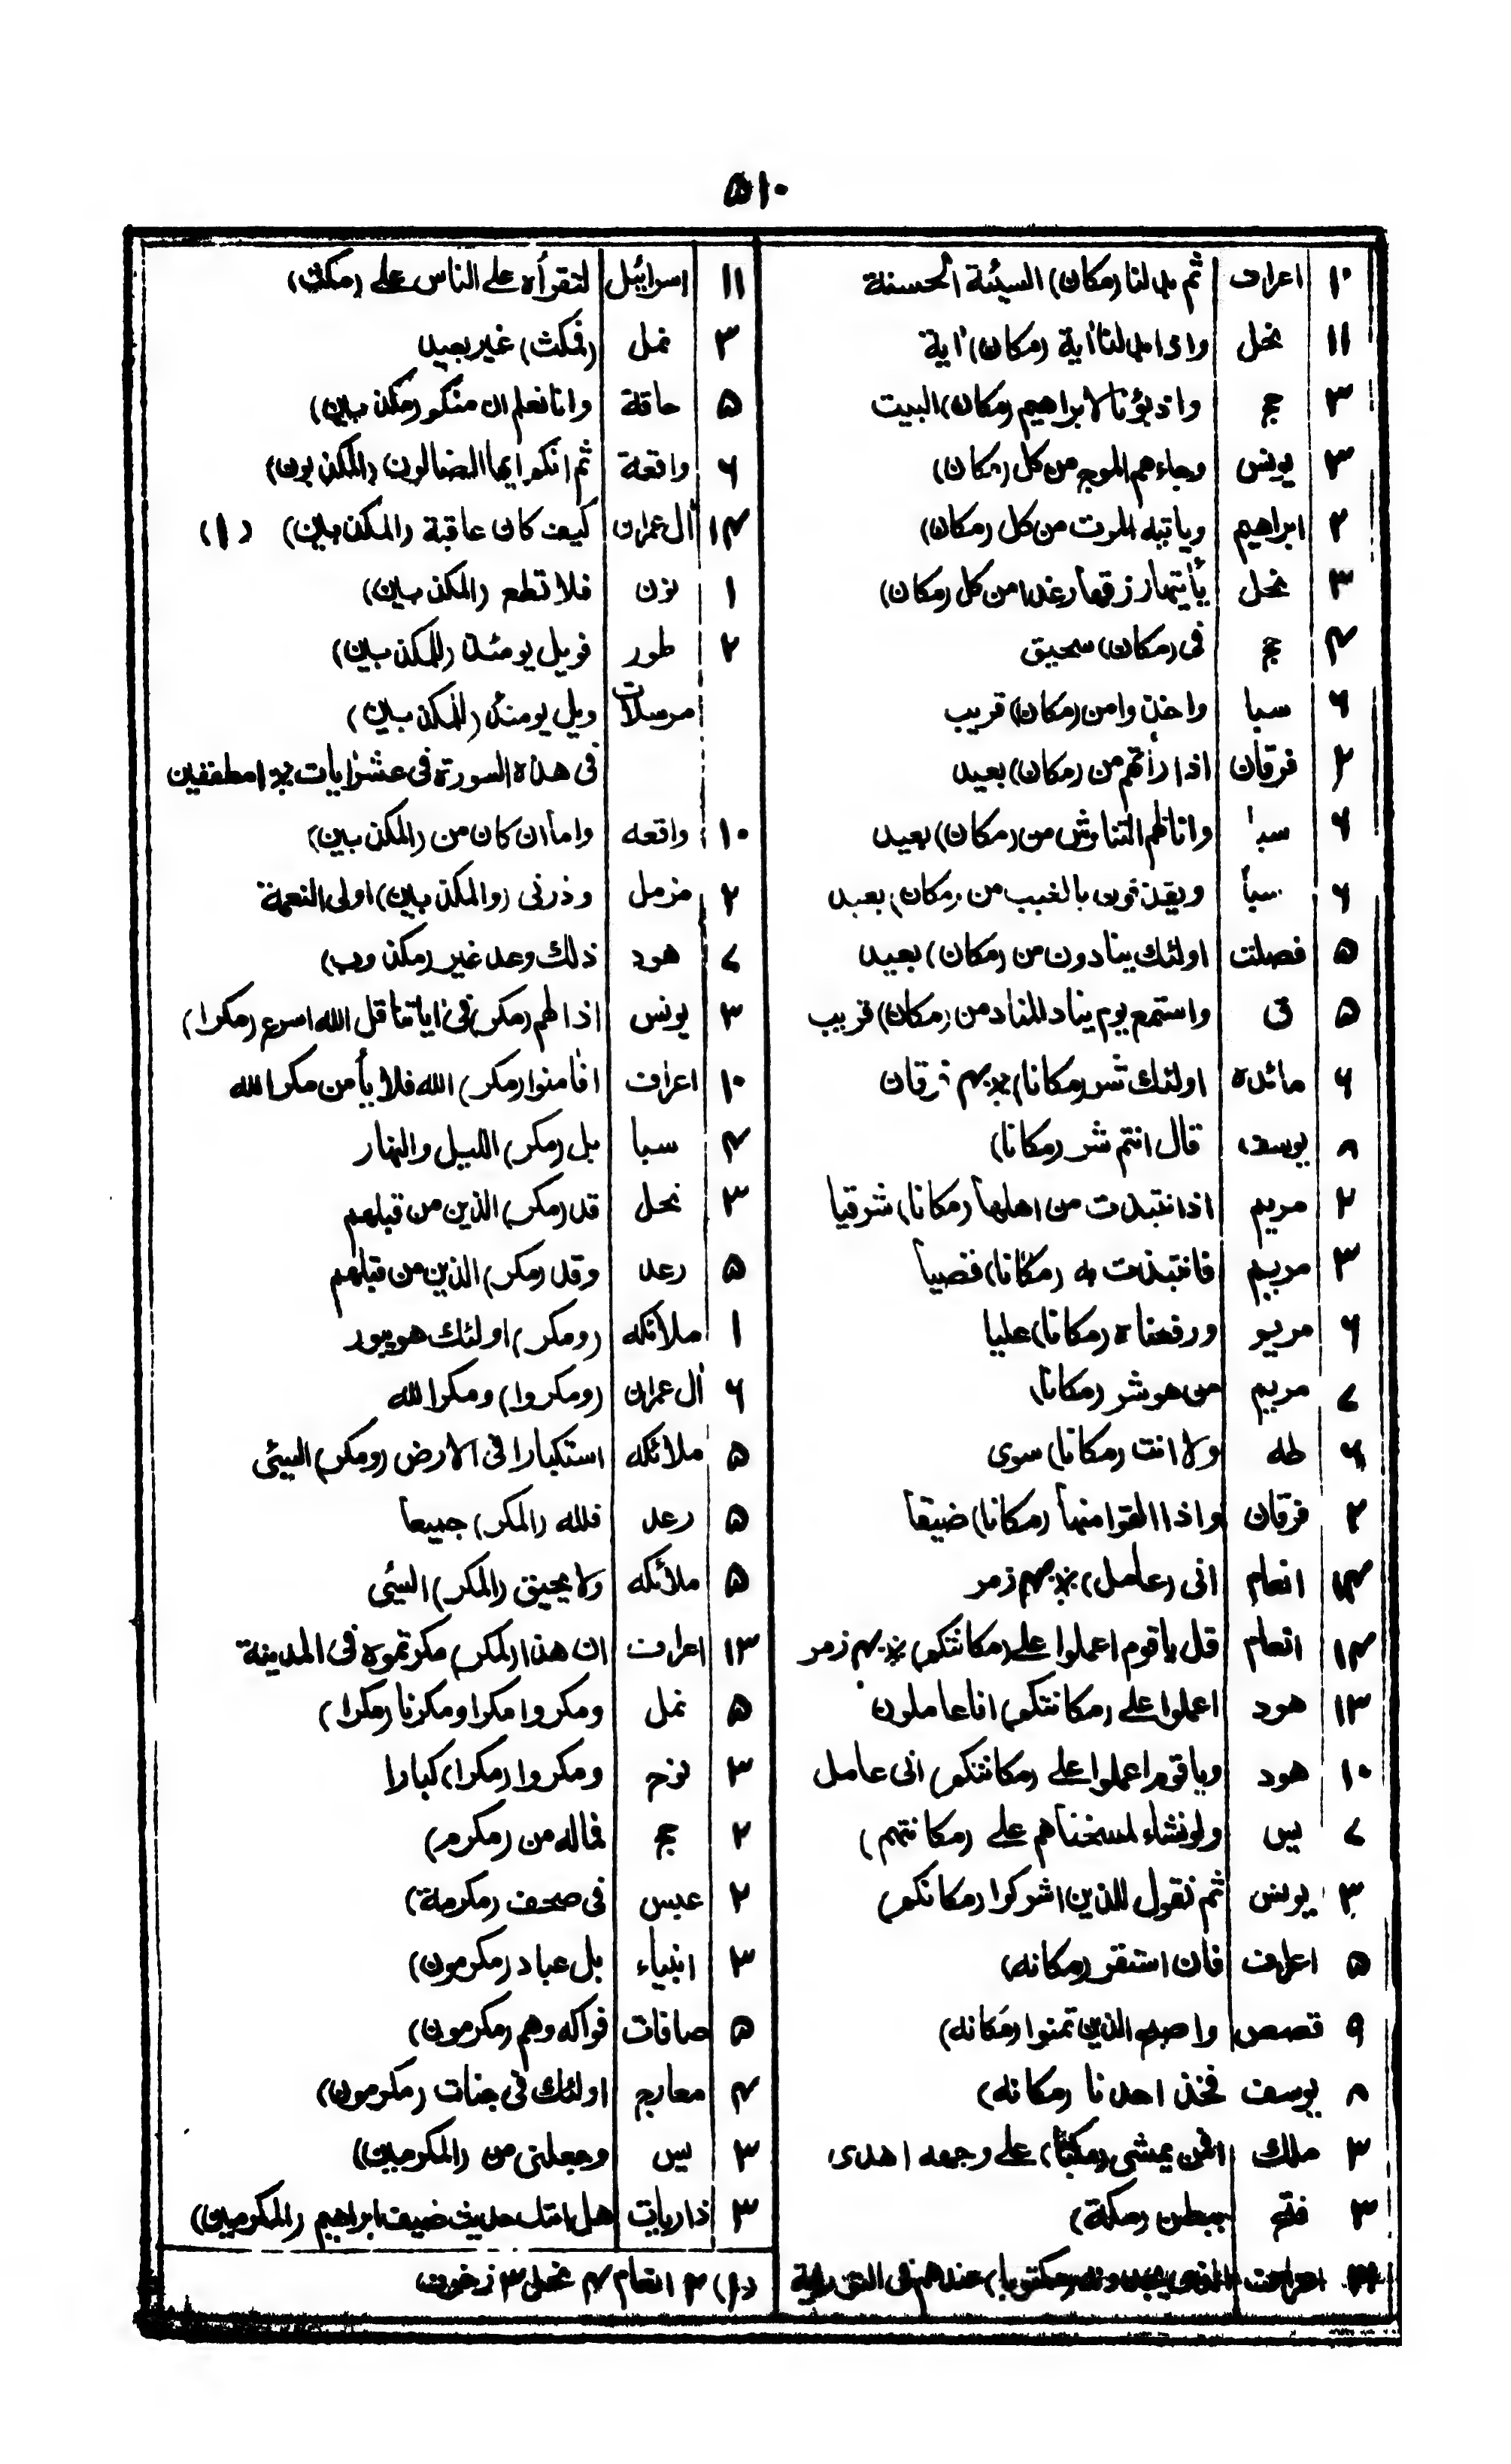 ٥١٠
١٠ اعراف ثم بدلنا (مكان) السيئة الحسنة
١١ نحل واذا بدلنا اٰية (مكان) اٰية
٣ حج واذ بؤنا لابراهيم (مكان) البيت
٣ يونس وجاءهم الموج من كل (مكان)
٢ ابراهيم وياتيه الموت من كل (مكان)
٣ نحل يأتيها رزقها رغدا من كل (مكان)
۴ حج فى (مكان) سحيق
۶ سبا واخذوا من (مكان) قريب
٢ فرقان اذا رأتهم من (مكان) بعيد
۶ سبأ وانا لهم التناوش من (مكان) بعيد
۶ سبأ ويقذفون بالغيب من (مكان) بعيد
۵ فصلت اولئك ينادون من (مكان) بعيد
۵ ق واستمع يوم يناد المناد من (مكان) قريب
۶ مائده اولئك شر (مكانا) ؛؛ ٣ فرقان
٨ يوسف قال انتم شر (مكانا)
٢ مريم اذ انتبذت من اهلها (مكانا) شرقيا
٣ مريم فانتبذت به (مكانا) قصيا
۶ مريم ورفعناه (مكانا) عليا
٧ مريم من هو شر (مكانا)
۶ طه ولا انت (مكانا) سوى
٢ فرقان واذا القوا منها (مكانا) ضيقا
١۴ انعام انى (عامل) ؛؛ ۴ زمر
١۴ انعام قل ياقوم اعملوا على (مكانتكم) ؛؛ ۴ زمر
١٣ هود اعملوا على (مكانتكم) انا عاملون
١٠ هود وياقوم اعملوا على (مكانتكم) انى عامل
٧ يس ولو نشاء لمسخناهم على (مكانتهم)
٣ يونس ثم نقول للذين اشركوا (مكانكم)
۵ اعراف فان استقر (مكانه)
٩ قصص واصبح الذين تمنوا (مكانه)
٨ يوسف فخذ احدنا (مكانه)
٣ ملك افمن يمشى (مكبا) على وجهه اهدى
٣ فتح ببطن (مكة)
اعراف الذى يجدونه (مكتوبا) عندهم فى التوراية
١١ اسرائيل لتقرأه على الناس على (مكث)
٣ نمل (فمكث) غير بعيد
۵ حاقة وانا نعلم ان منكم (مكذبين)
۶ واقعة ثم انكم ايها الضالون (المكذبون)
١۴ اٰل عمران كيف كان عاقبة (المكذبين) (١)
١ نون فلا تطع (المكذبين)
٢ طور فويل يومئذ (للمكذبين)
مرسلات ويل يومئذ (للمكذبين)
فى هذه السورة فى عشر اٰيات ؛؛ ١ مطففين
١٠ واقعه واما ان كان من (المكذبين)
٢ مزمل وذرنى (والمكذبين) اولى النعمة
٧ هود ذلك وعد غير (مكذوب)
٣ يونس اذا لهم (مكر) فى اٰياتنا قل الله اسرع (مكرا)
١٠ اعراف افامنوا (مكر) الله فلا يأمن مكر الله
۴ سبا بل (مكر) الليل والنهار
٣ نحل قد (مكر) الذين من قبلهم
۵ رعد وقد (مكر) الذين من قبلهم
١ ملائكه (ومكر) اولئك هو يبور
۶ اٰل عمران (ومكروا) ومكر الله
۵ ملائكه استكبارا فى الارض (ومكر) السيئى
۵ رعد فلله (المكر) جميعا
۵ ملائكه ولا يحيق (المكر) السيئى
١٣ اعراف ان هذا (لمكر) مكرتموه فى المدينة
۵ نمل ومكروا مكرا ومكرنا (مكرا)
٣ نوح ومكروا (مكرا) كبارا
٢ حج فما له من (مكرم)
٢ عبس فى صحف (مكرمة)
٣ انبياء بل عباد (مكرمون)
۵ صافات فواكه وهم (مكرمون)
۴ معارج اولئك فى جنات (مكرمون)
٣ يس وجعلنى من (المكرمين)
٣ ذاريات هل اتىك حديث ضيف ابراهيم (المكرمين)
(١) ٢ انعام ۴ نحل ٣ زخرف